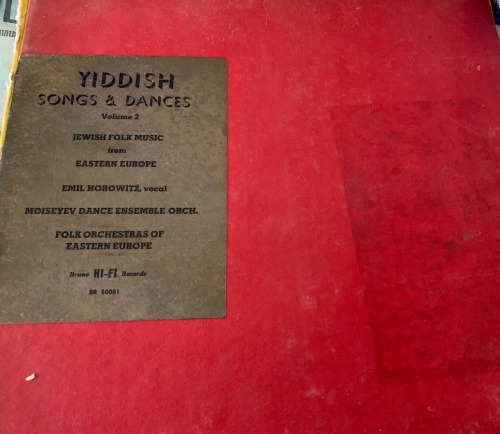 YIDDISH
SONGS & DANCES
Volume 2
JEWISH FOLK MUSIC
from
EASTERN EUROPE
EMIL HOROWITZ, vocal
MOISEYEV DANCE ENSEMBLE ORCH.
FOLK ORCHESTRAS OF
EASTERN EUROPE
Bruno HI-FI Records
BR 50081